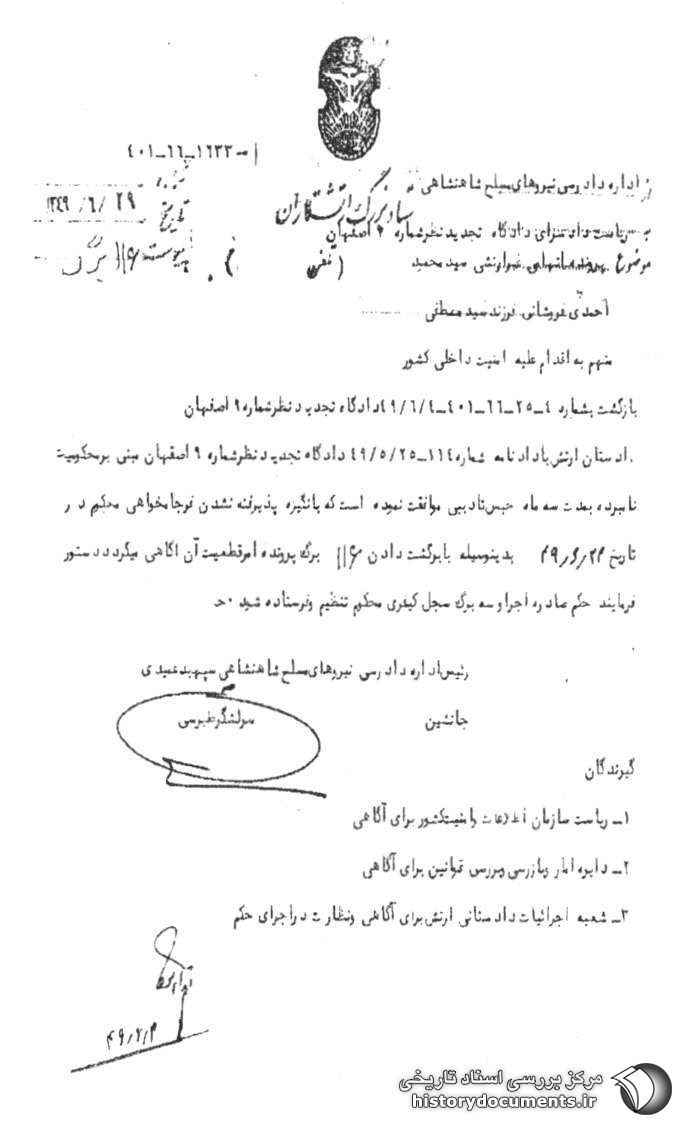 ۴۰۱-۶۶-۱۶۳۳
شماره
تاریخ ۱۳۴۹/۶/۲۹
پیوست ۱۱۶ برگ
ستاد بزرگ ارتشتاران
از اداره دادرسی نیروهای مسلح شاهنشاهی
به ریاست دادسرای دادگاه تجدید نظر شماره ۹ اصفهان
موضوع پرونده اتهامی غیرارتشی سید محمید
( تلفن )
احمدی فروشانی فرزند سید مصطفی
متهم به اقدام علیه امنیت داخلی کشور
بازگشت بشماره ۴-۲۵-۶۶-۴۰۱-۴۹/۶/۴ دادگاه تجدید نظر شماره ۹ اصفهان
دادستان ارتش با دادنامه شماره ۱۱۴-۴۹/۵/۲۵ دادگاه تجدید نظر شماره ۹ اصفهان مبنی بر محکومیت
نامبرده بمدت سه ماه حبس تادیبی موافقت نموده است که با نگیزه پذیرفته نشدن فرجامخواهی محکوم در
تاریخ ۴۹/۶/۲۴ بدینوسیله با برگشت دادن ۱۱۶ برگ پرونده امر قطعیت آن آگاهی میگردد دستور
فرمایند حکم صادره اجرا و سه برگ سجل کیفری محکوم تنظیم و فرستاده شود ۰ح
رئیس اداره دادرسی نیروهای مسلح شاهنشاهی سپهبد عمیدی
جانشین سرلشگر طبرسی
گیرندگان
۱- ریاست سازمان اطلاعات و امنیت کشور برای آگاهی
۲- دایره امار وبازرسی وبررسی قوانین برای آگاهی
۳- شعبه اجرائیات دادستانی ارتش برای آگاهی ونظارت در اجرای حکم
مرکز بررسی اسناد تاریخی
historydocuments.ir